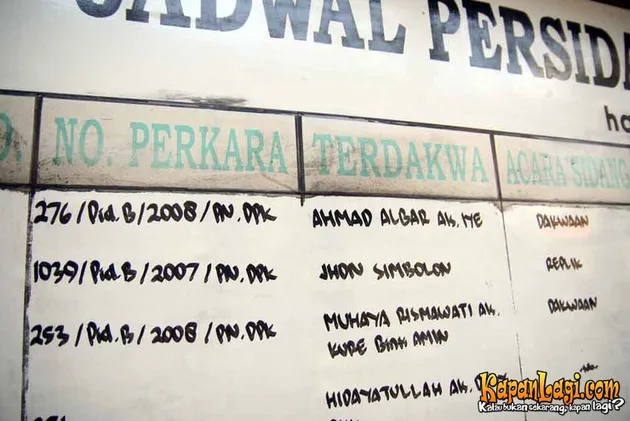 JADWAL PERSIDA
ha
O. NO. PERKARA TERDAKWA ACARA SIDANG
276/Pid.B/2008/PN.DPK AHMAD ALBAR AK. IYE DAKWAAN
1039/Pid.B/2007/PN.DPK JHON SIMBOLON REPLIK
253/Pid.B/2008/PN.DPK MUHAYA RISMAWATI AK. DAKWAAN
KURE BINH AMIN
HIDAYATULLAH AK.
KapanLagi.com
Kalau bukan sekarang, kapan lagi?